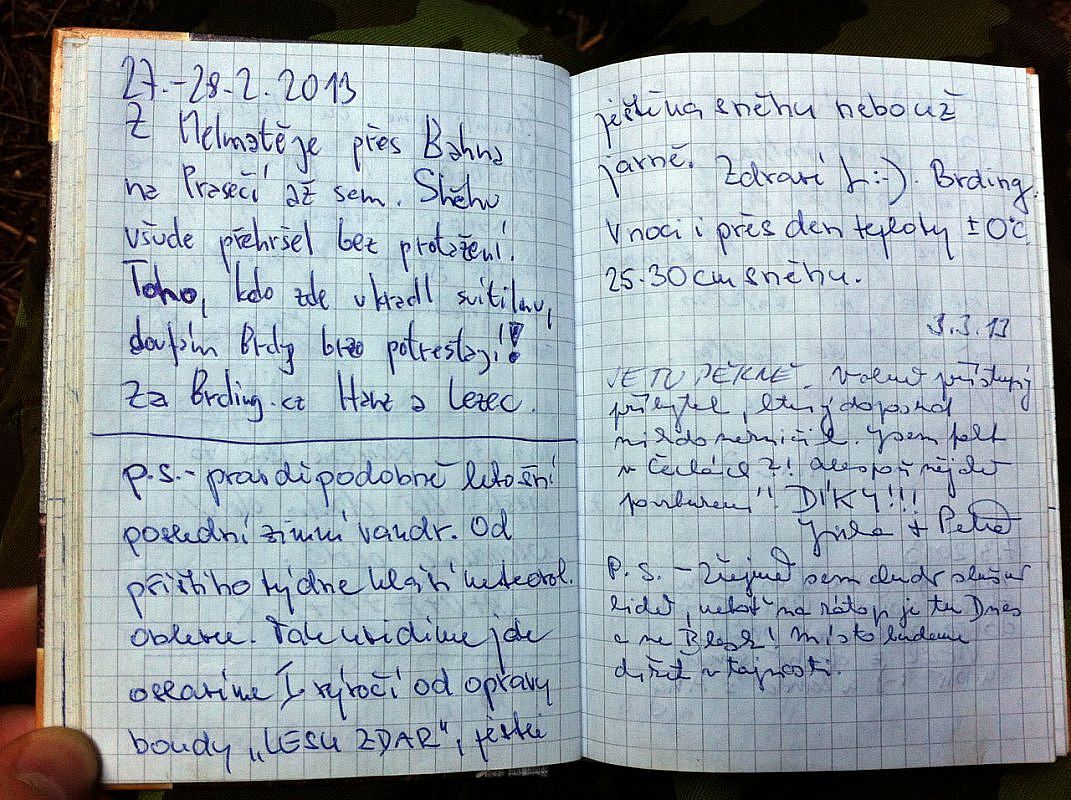 27.-28.2.2013
Z Melmatěje přes Bahna
na Prasečí až sem. Sněhu
všude přehršel bez protažení!
Toho, kdo zde ukradl svítilnu,
doufám Brdy brzo potrestají!
Za Brding.cz Hanz a Lezec.
P.S.- pravdipodobně letošní
poslední zimní vandr. Od
příštího týdne hlásí meteorol.
oblevu. Tak uvidíme jak
oslavíme I. výročí od opravy
boudy „LESU ZDAR“, jestli
ještě na sněhu nebo už
jarně. Zdraví L:-). Brding.
V noci i přes den teploty ±0°C
25-30cm sněhu.
3.3.13
JE TU PĚKNĚ. Volně přístupný
příbytek, který doposud
nikdo nezničil. Jsem fakt
v Čechách?!
DÍKY!!!
Jirka + Petra
P.S. - Zřejmě sem chodí slušní
lidé, neboť na zátop je tu Dnes
a ne Blesk! Místo budeme
držet v tajnosti.